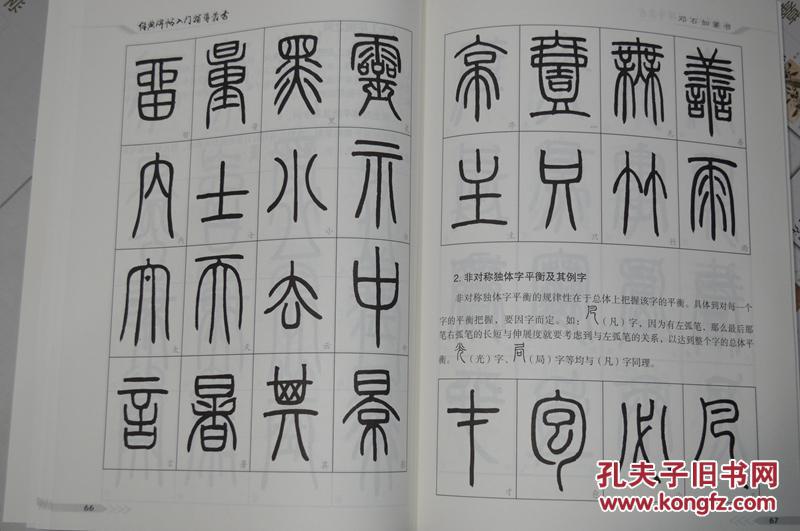 经典碑帖入门指导丛书
靈 黑 量 畱
示 小 士 内
中 去 天
景 其 暑 言
66
善 無 壹 帝
雨 竹 只 主
2. 非对称独体字平衡及其例字
非对称独体字平衡的规律性在于总体上把握该字的平衡。具体到对每一个
字的平衡把握，要因字而定。如：（凡）字，因为有左弧笔，那么最后那
笔右弧笔的长短与伸展度就要考虑到与左弧笔的关系，以达到整个字的总体平
衡。（光）字、（局）字等均与（凡）字同理。
凡 必 才
67
孔夫子旧书网
www.kongfz.com